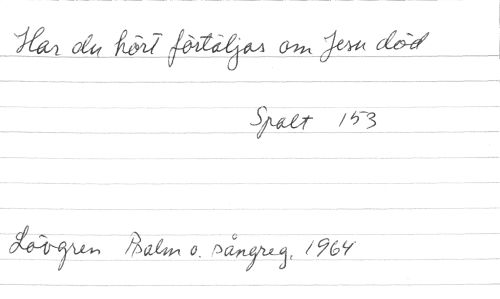 Har du hört förtäljas om Jesu död
Spalt 153
Lövgren Psalm o. sångreg. 1964